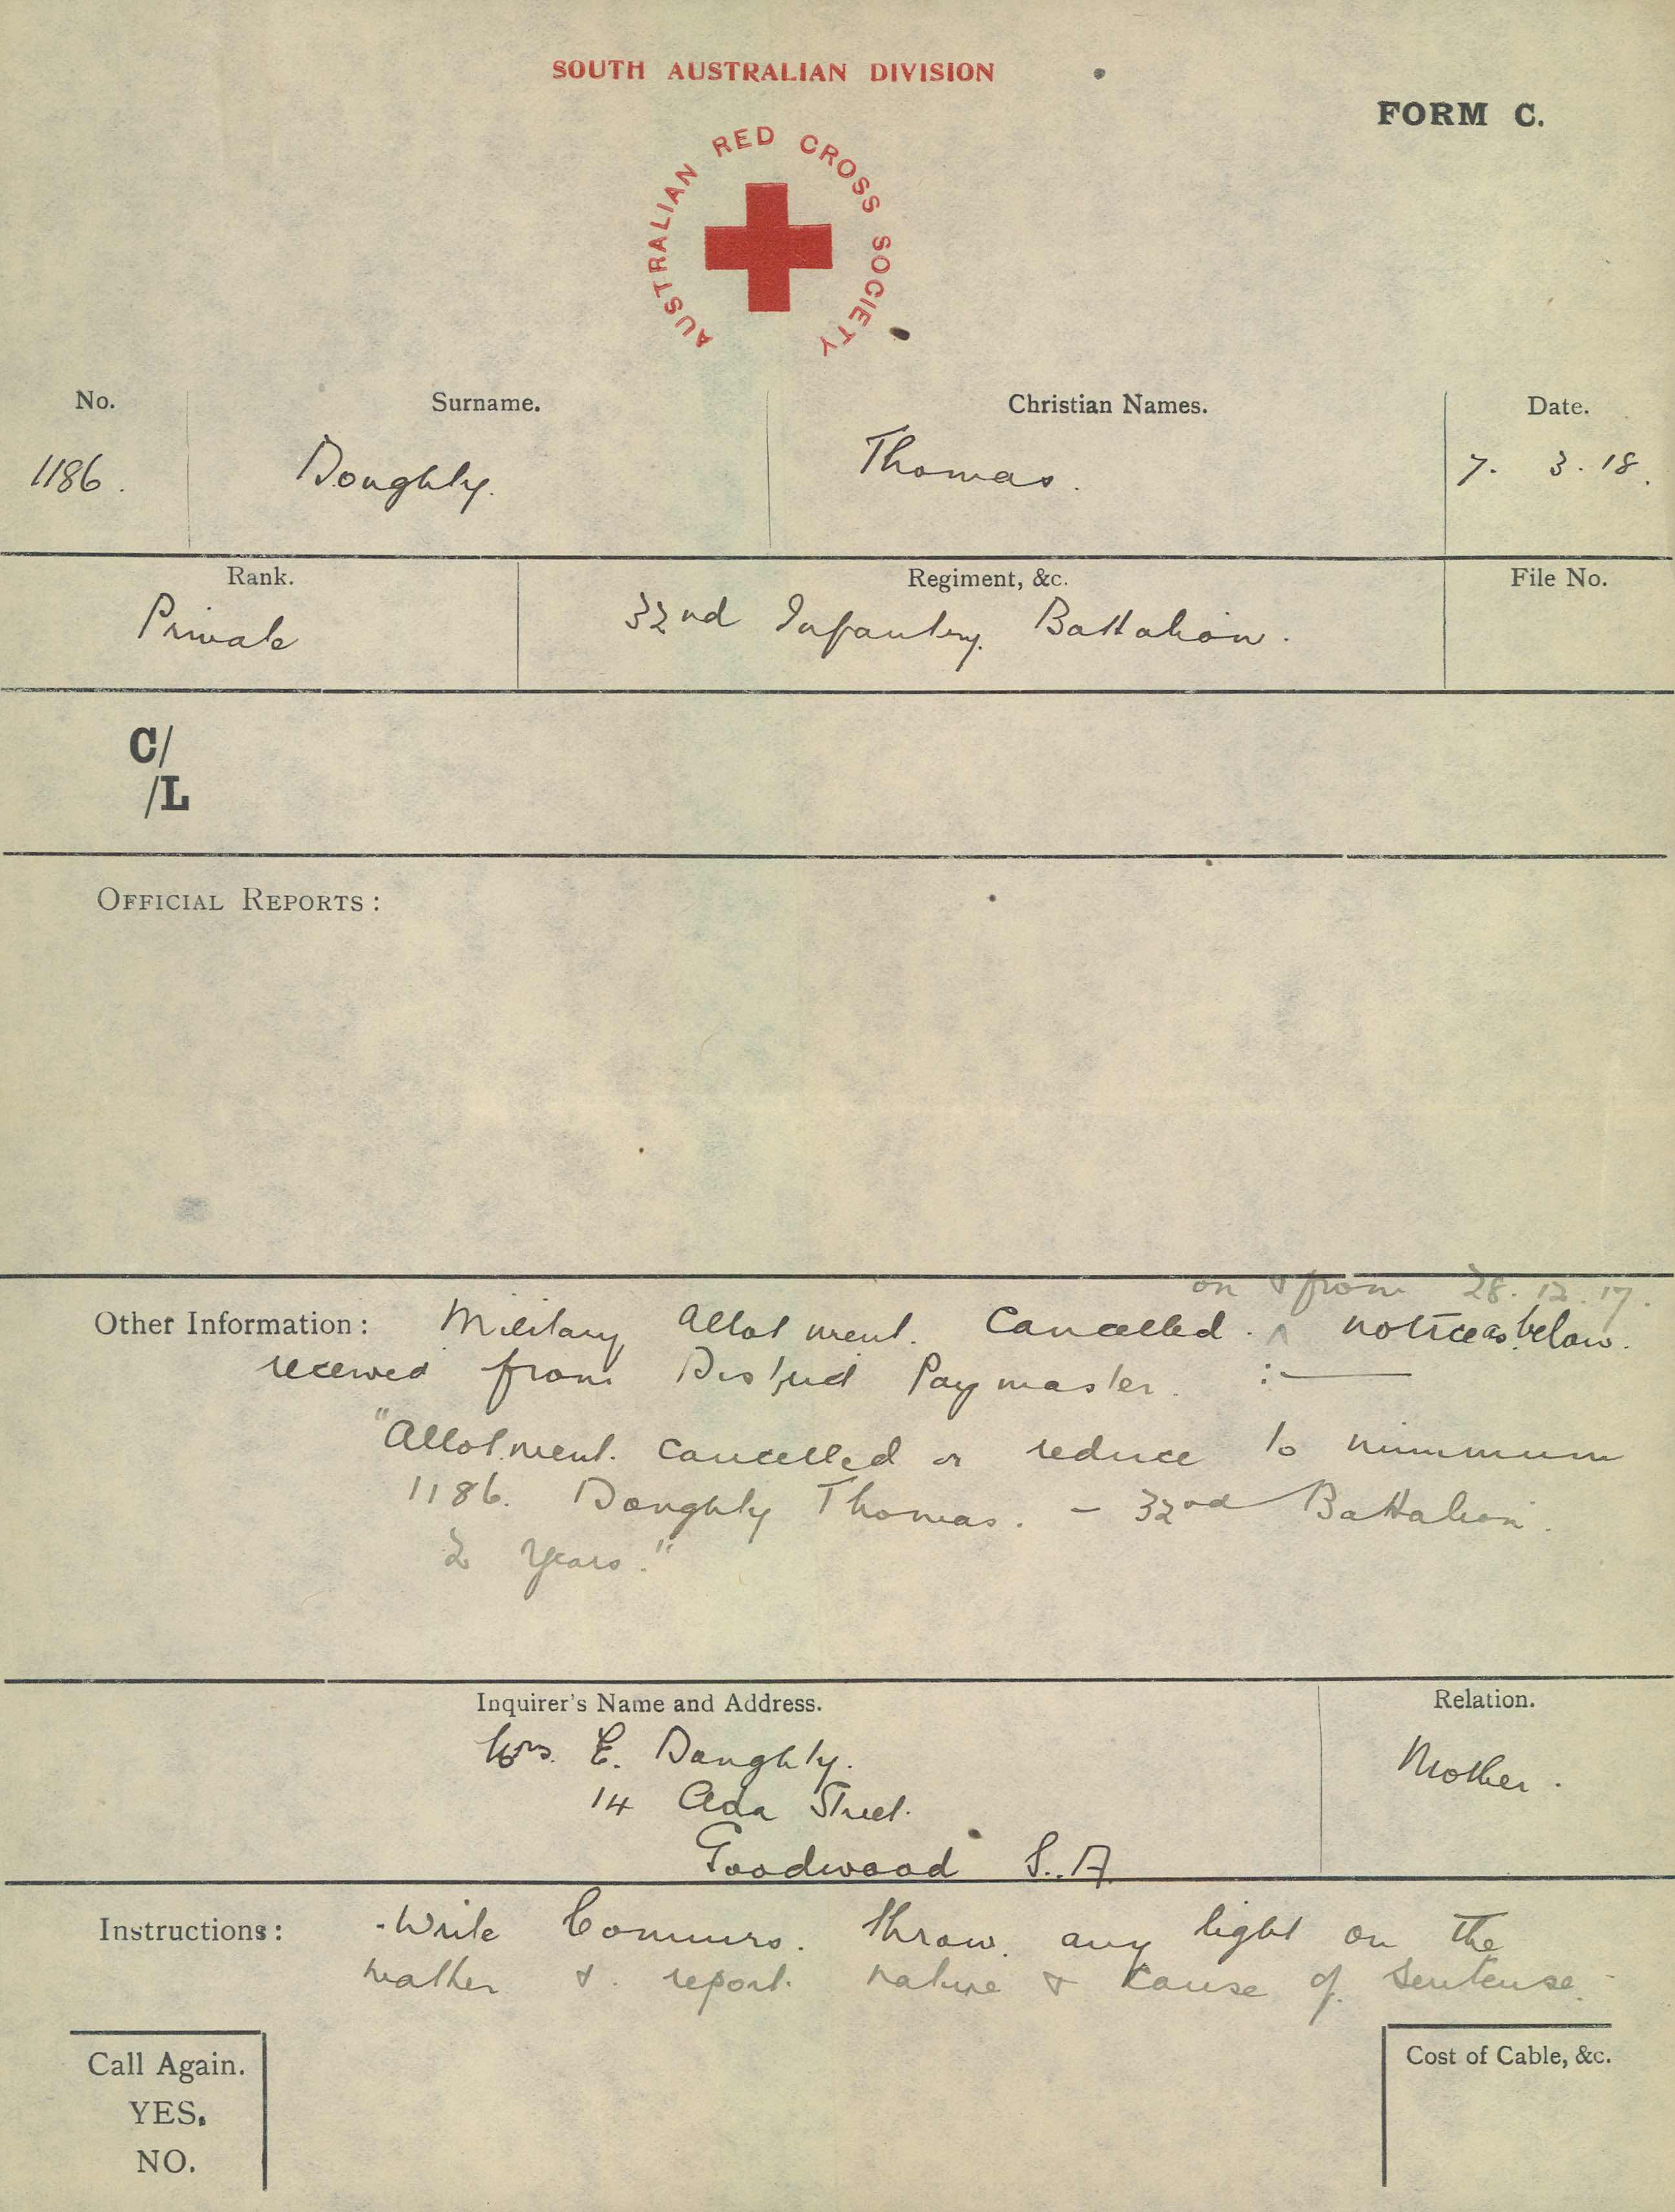 SOUTH AUSTRALIAN DIVISION
FORM C.
AUSTRALIAN RED CROSS SOCIETY
No. Surname. Christian Names. Date.
1186. Doughty. Thomas. 7. 3. 18.
Rank. Regiment, &c. File No.
Private 32nd Infantry Battalion.
C/
/L
OFFICIAL REPORTS:
on & from 28.12.17.
Other Information: Military Allotment. Cancelled. ^ notice as below.
received from District Paymaster. :—
"Allotment. cancelled or reduce to minimum
1186. Doughty Thomas. - 32nd Battalion.
2 Years."
Inquirer's Name and Address. Relation.
Mrs. E. Doughty. Mother.
14 Ada Street.
Goodwood S.A.
Instructions: -Write Commrs. throw. any light on the
matter &. report. nature & cause of. sentense.
Call Again. Cost of Cable, &c.
YES.
NO.